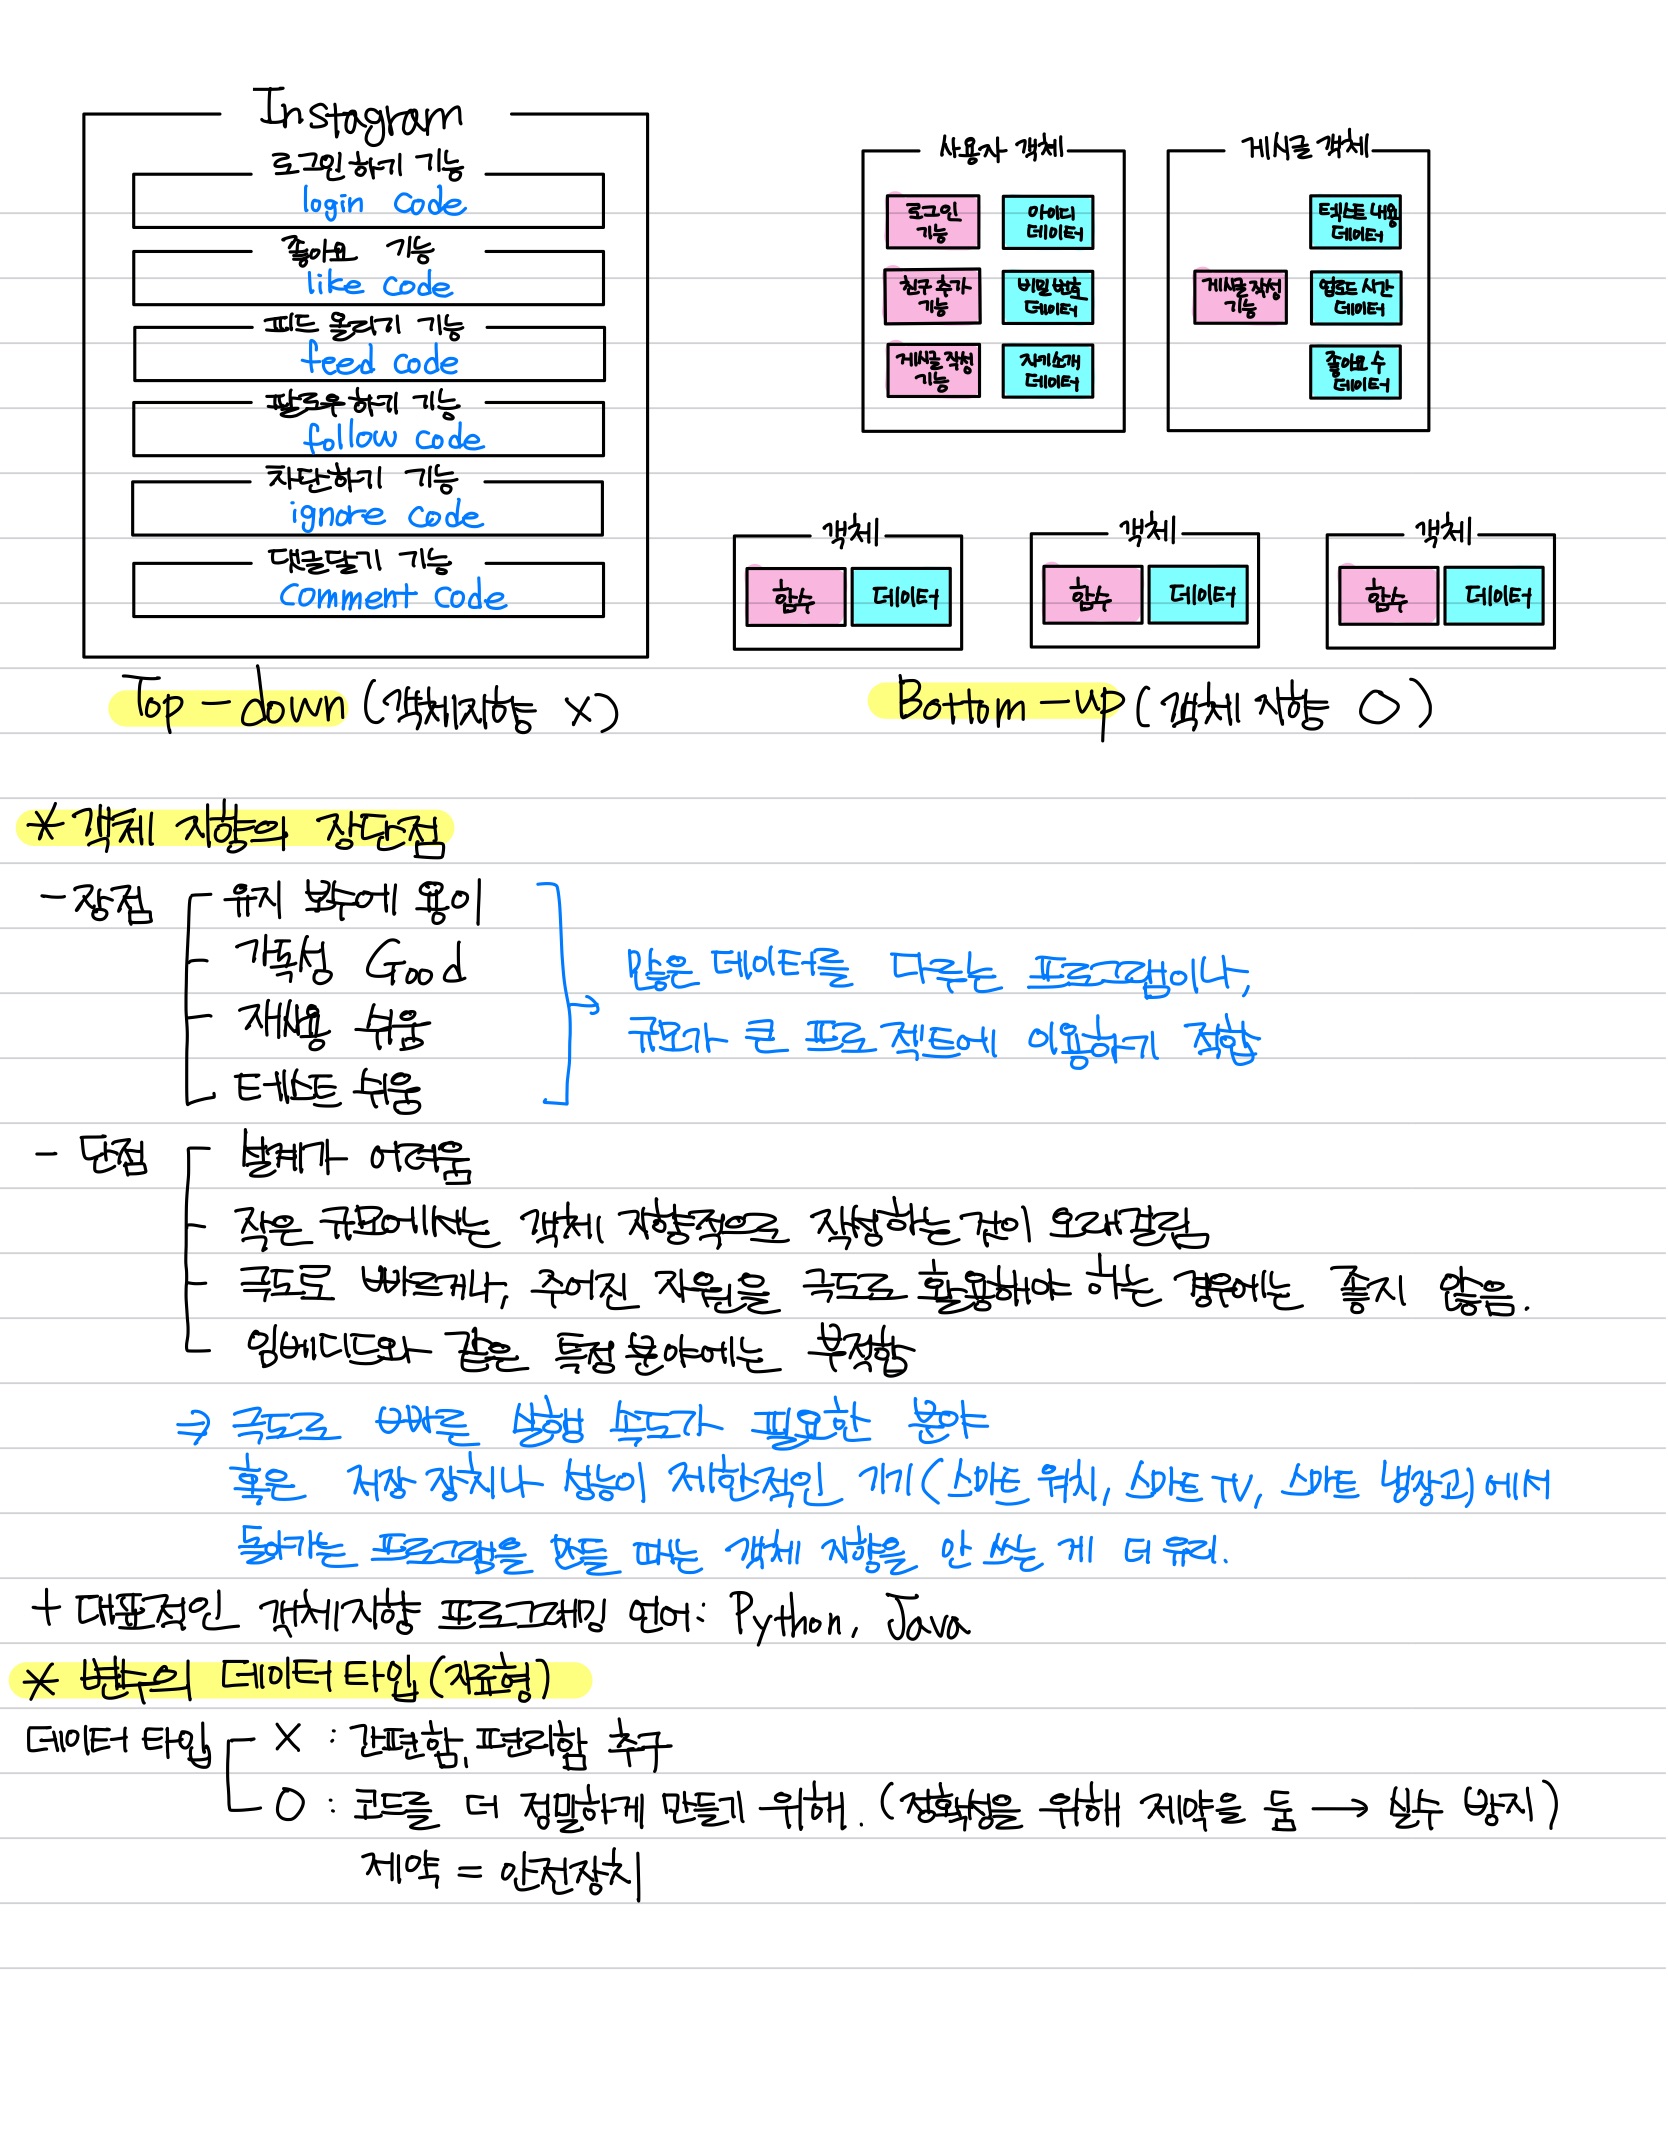 Instagram
로그인하기 기능
login code
좋아요 기능
like code
피드 올리기 기능
feed code
팔로우하기 기능
follow code
차단하기 기능
ignore code
댓글달기 기능
comment code
Top-down (객체지향 X)
사용자 객체
로그인
기능
아이디
데이터
친구 추가
기능
비밀 번호
데이터
게시글 작성
기능
자기소개
데이터
게시글 객체
텍스트 내용
데이터
게시글 작성
기능
업로드 시간
데이터
좋아요 수
데이터
객체
함수 데이터
객체
함수 데이터
객체
함수 데이터
Bottom-up (객체 지향 O)
* 객체 지향의 장단점
- 장점
유지 보수에 용이
가독성 Good
재사용 쉬움
테스트 쉬움
→ 많은 데이터를 다루는 프로그램이나,
규모가 큰 프로젝트에 이용하기 적합
- 단점
설계가 어려움
작은 규모에서는 객체 지향적으로 작성하는 것이 오래걸림
극도로 빠르거나, 주어진 자원을 극도로 활용해야 하는 경우에는 좋지 않음.
임베디드와 같은 특정 분야에는 부적합
⇒ 극도로 빠른 실행 속도가 필요한 분야
혹은 저장 장치나 성능이 제한적인 기기(스마트 워치, 스마트 TV, 스마트 냉장고)에서
돌아가는 프로그램을 만들 때는 객체 지향을 안 쓰는 게 더 유리.
+ 대표적인 객체지향 프로그래밍 언어: Python, Java
* 변수의 데이터 타입(자료형)
데이터 타입
X : 간편함, 편리함 추구
O : 코드를 더 정밀하게 만들기 위해. (정확성을 위해 제약을 둠 → 실수 방지)
제약 = 안전장치